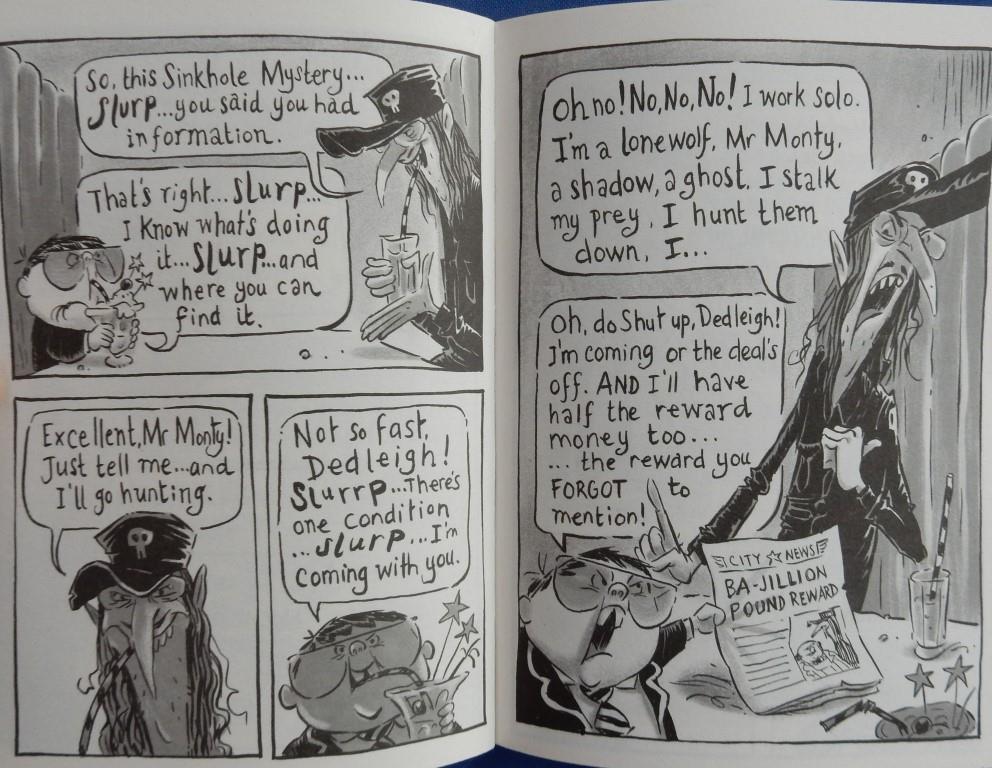 So, this Sinkhole Mystery...
Slurp...you said you had
information.
That's right... Slurp...
I know what's doing
it...Slurp...and
where you can
find it.
Excellent, Mr Monty!
Just tell me...and
I'll go hunting.
Not so fast,
Dedleigh!
Slurrp...There's
one condition
...slurp...I'm
coming with you.
Oh no! No, No, No! I work solo.
I'm a lone wolf, Mr Monty,
a shadow, a ghost. I stalk
my prey, I hunt them
down, I...
Oh, do Shut up, Dedleigh!
I'm coming or the deal's
off. AND I'll have
half the reward
money too...
... the reward you
FORGOT to
mention!
CITY NEWS
BA-JILLION
POUND REWARD